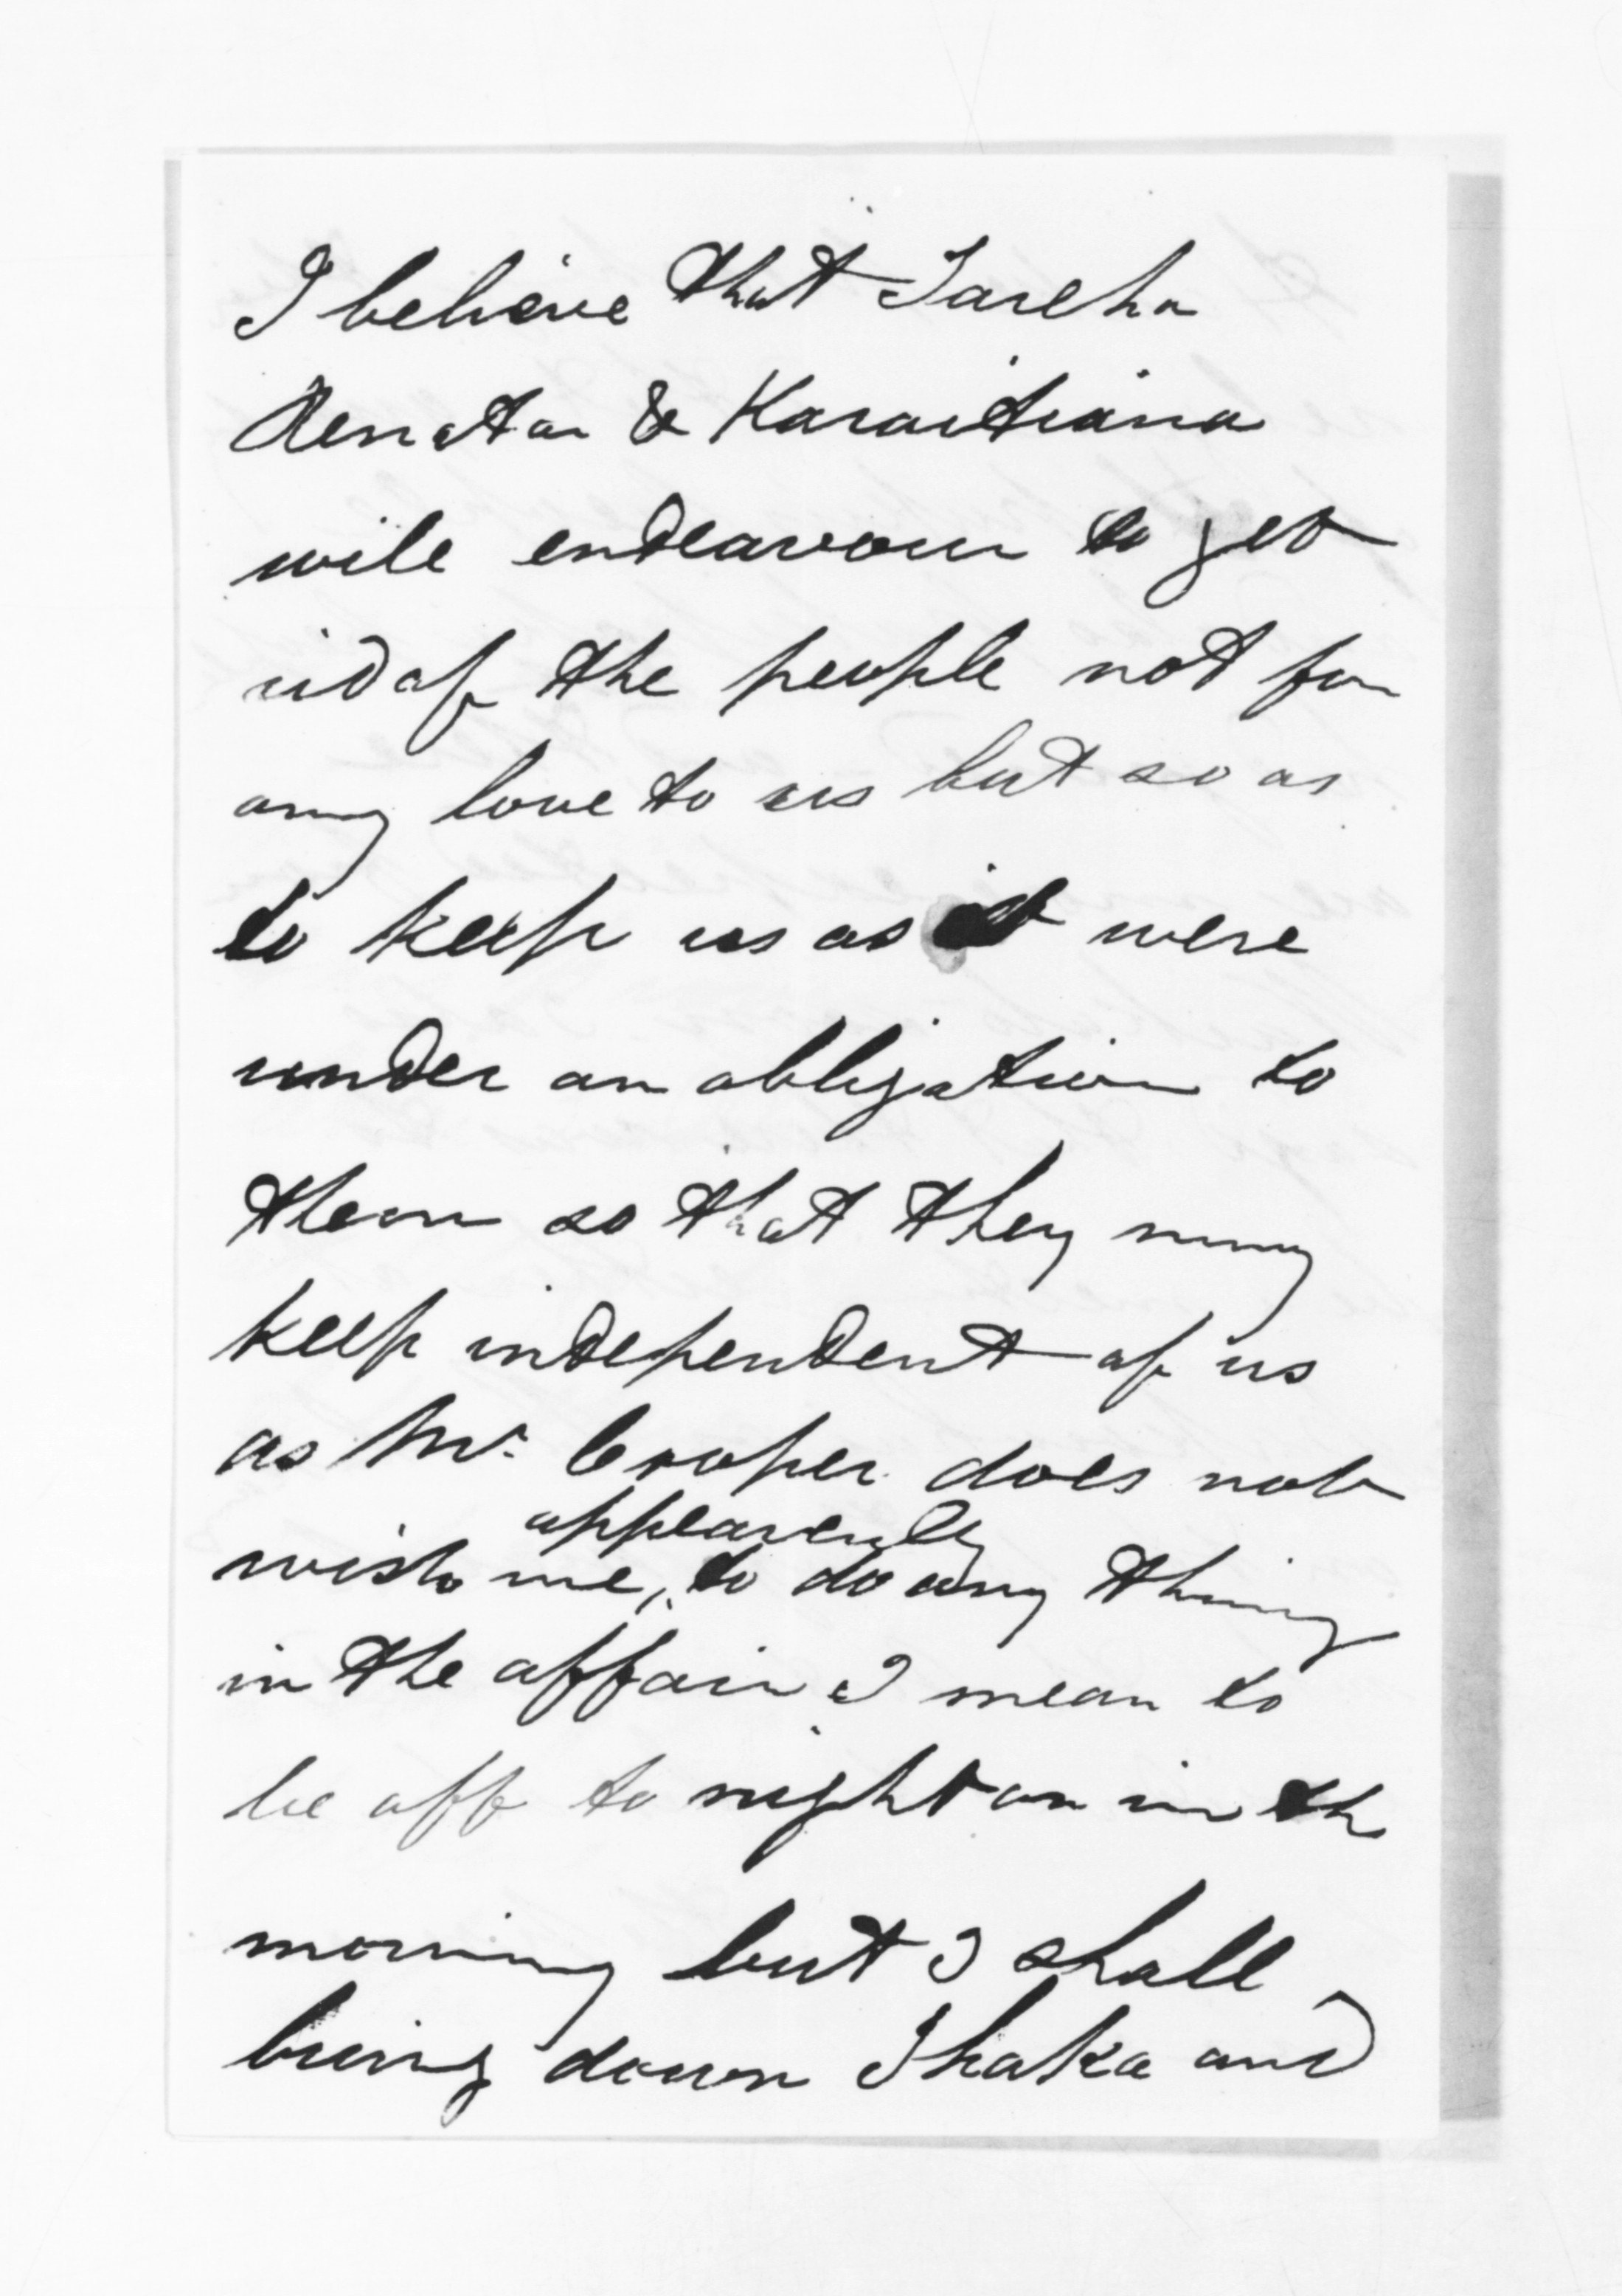 I believe that Tareha
Renata & Karaitiana
will endeavour to get
rid of the people not for
any love to us but so as
to keep us as it were
under an obligation to
them so that they may
keep independent of us
as Mr. Cooper does not
apparently
wish me, to do any thing
in the affair I mean to
be off to night or in th
morning but I shall
bring down Ihaka and